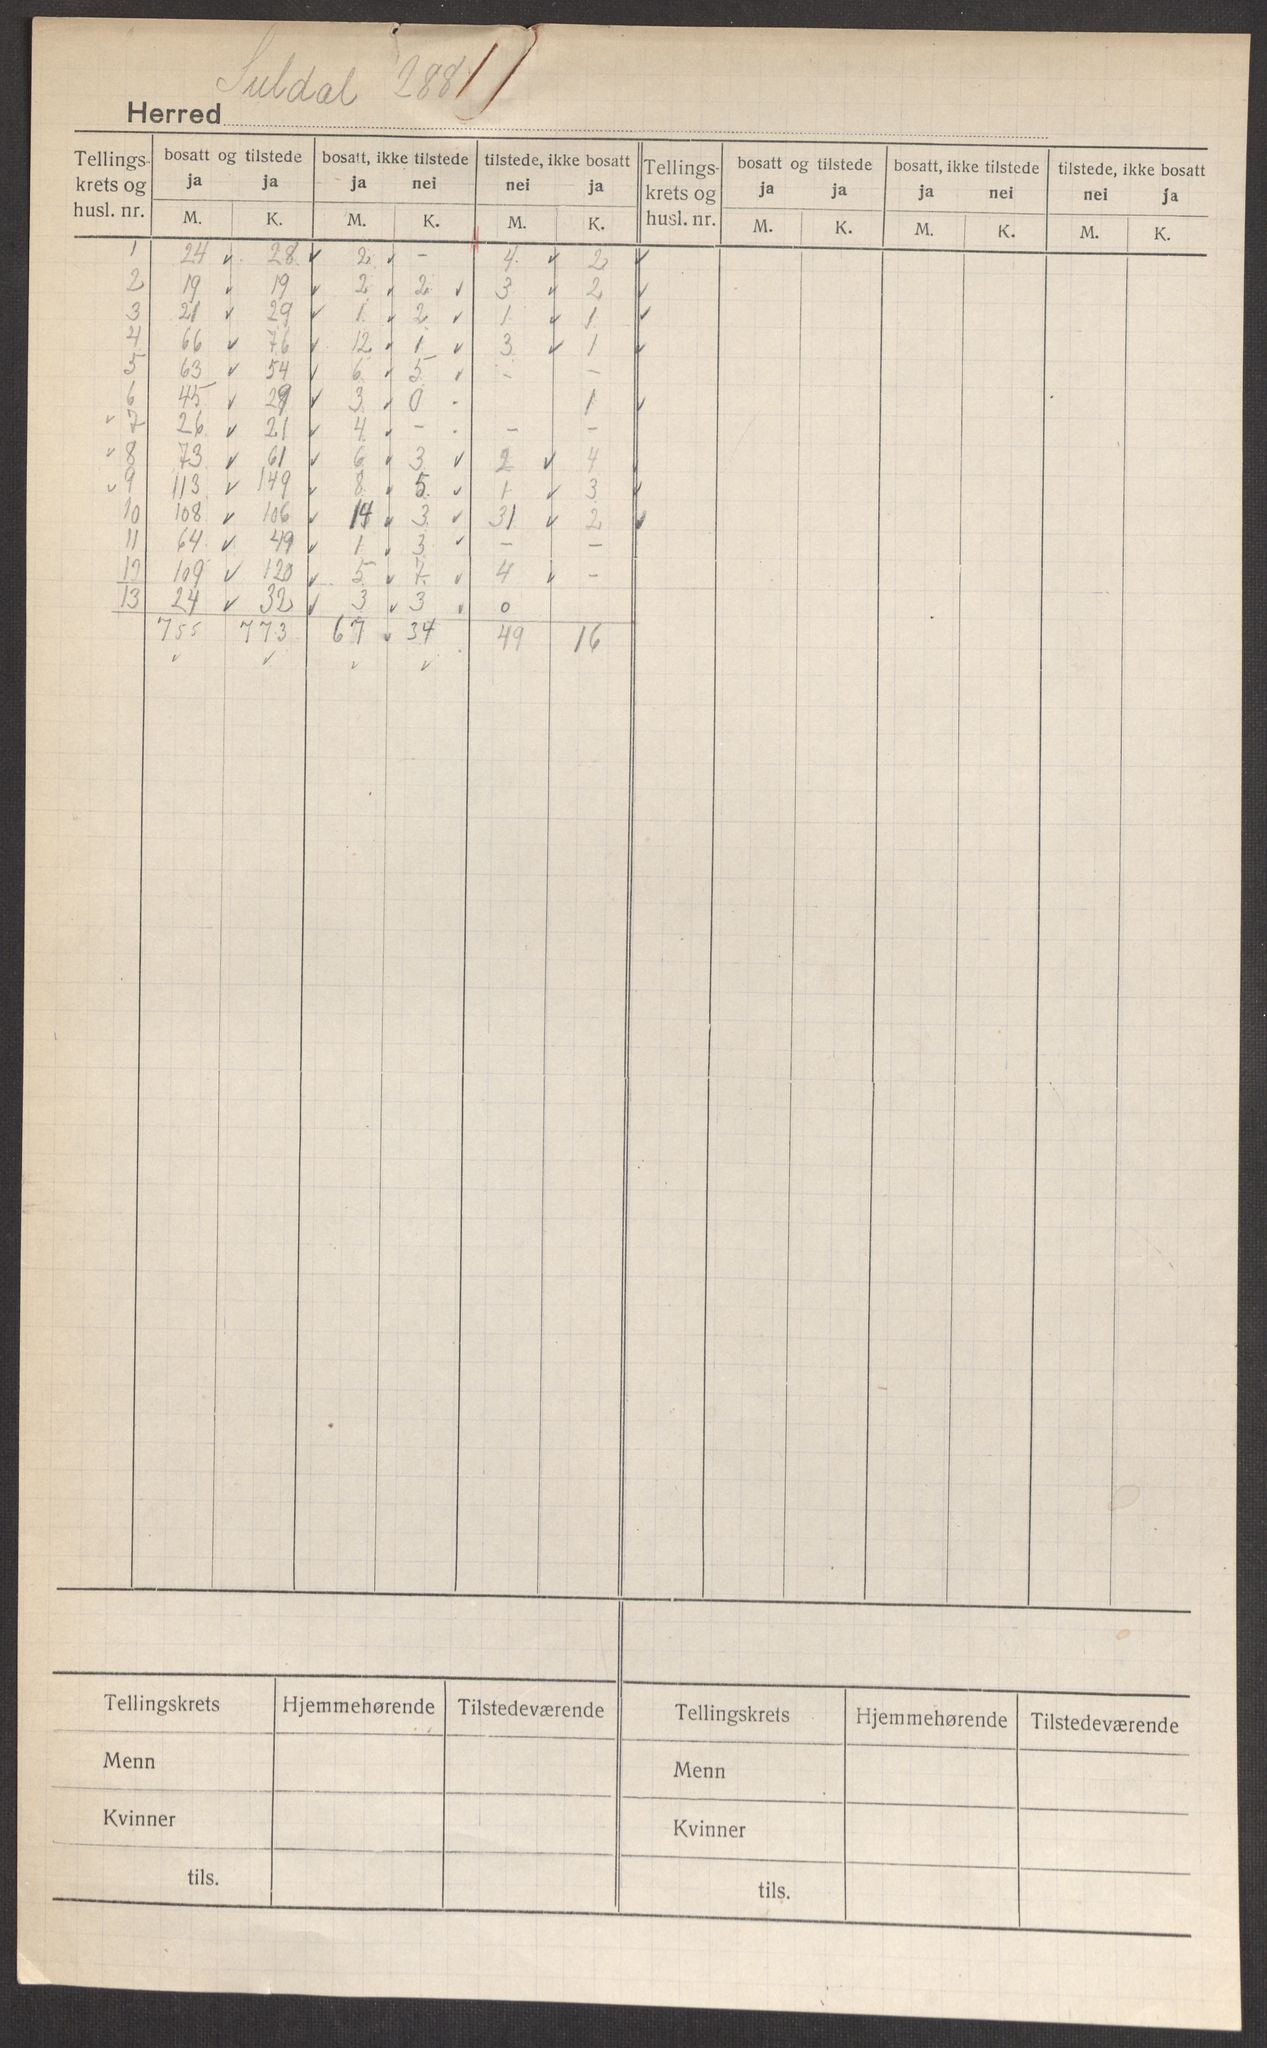 Suldal 288
Herred
Tellings- krets og husl. nr. bosatt og tilstede bosatt, ikke tilstede tilstede, ikke bosatt Tellings- krets og husl. nr. bosatt og tilstede bosatt, ikke tilstede tilstede, ikke bosatt
ja ja ja nei nei ja ja ja ja nei nei ja
M. K. M. K. M. K. M. K. M. K. M. K.
1 24 ✓ 28 ✓ 2 ✓ - 4 ✓ 2 ✓
2 19 ✓ 19 ✓ 2 ✓ 2 ✓ 3 ✓ 2 ✓
3 21 ✓ 29 ✓ 1 ✓ 2 ✓ 1 ✓ 1 ✓
4 66 ✓ 76 ✓ 12 ✓ 1 ✓ 3 ✓ 1 ✓
5 63 ✓ 54 ✓ 6 ✓ 5 ✓ - -
6 45 ✓ 29 ✓ 3 ✓ 0 - 1 ✓
✓ 7 26 ✓ 21 ✓ 4 ✓ - - -
✓ 8 73 ✓ 61 ✓ 6 ✓ 3 ✓ 2 ✓ 4 ✓
✓ 9 113 ✓ 149 ✓ 8 ✓ 5 ✓ 1 ✓ 3 ✓
10 108 ✓ 106 ✓ 14 ✓ 3 ✓ 31 ✓ 2 ✓
11 64 ✓ 49 ✓ 1 ✓ 3 ✓ - -
12 109 ✓ 120 ✓ 5 ✓ 7 ✓ 4 ✓ -
13 24 ✓ 32 ✓ 3 ✓ 3 ✓ 0
755 773 67 ✓ 34 49 16
✓ ✓ ✓ ✓
Tellingskrets Hjemmehørende Tilstedeværende Tellingskrets Hjemmehørende Tilstedeværende
Menn Menn
Kvinner Kvinner
tils. tils.